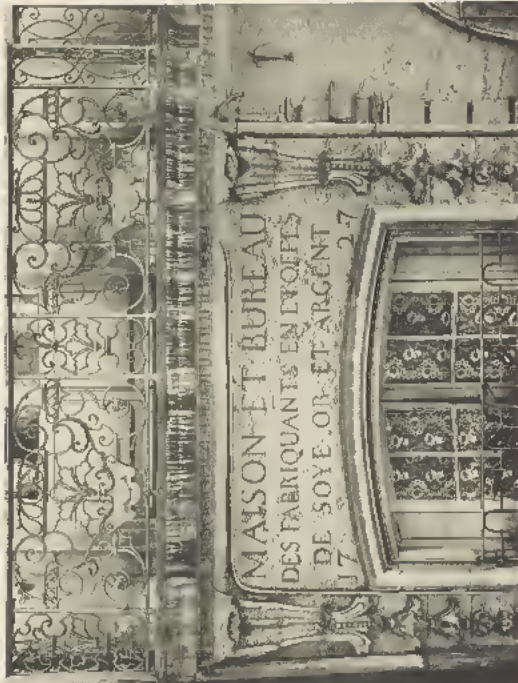 MAISON·ET BUREAU
DES FABRIQUANTS EN ETOFFES
DE SOYE·OR·ET·ARGENT
17 27